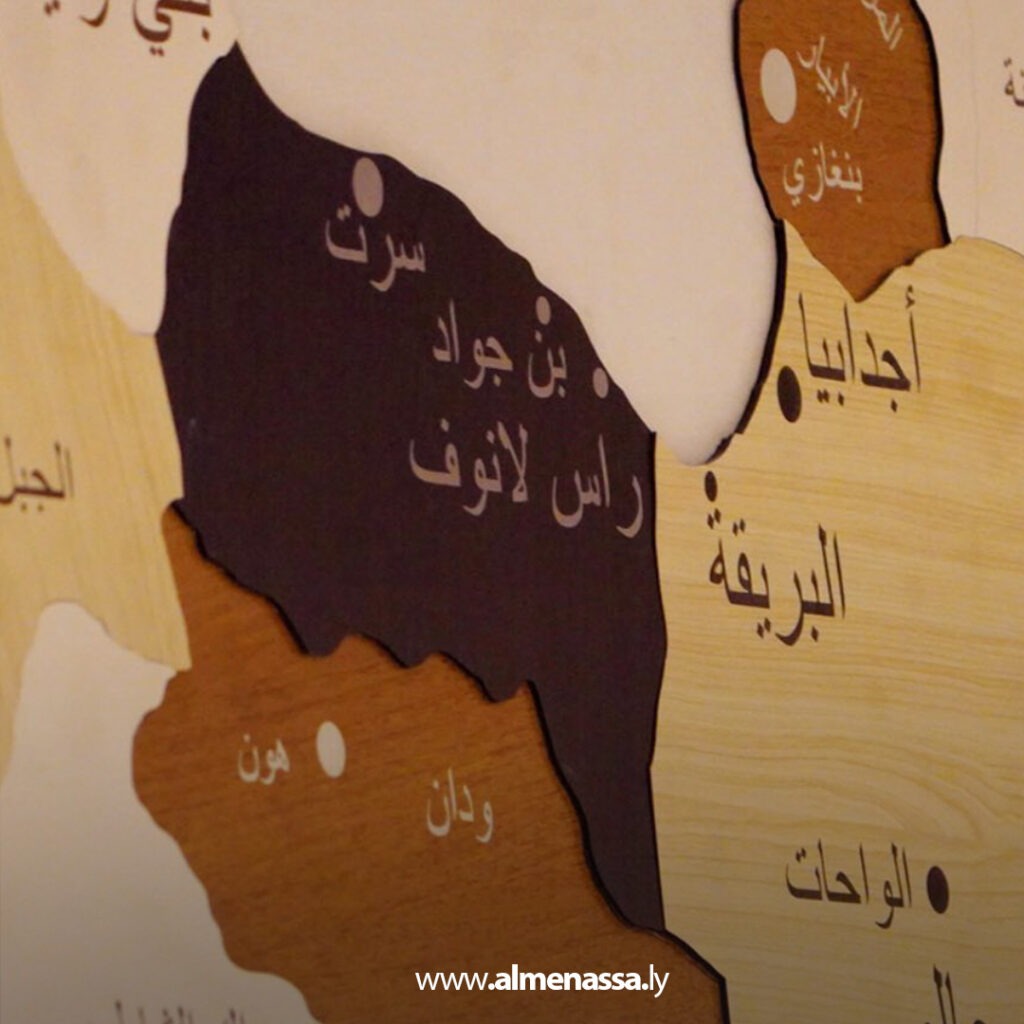 الأبيار
بنغازي
سرت
أجدابيا
بن جواد
راس لانوف
الجبل
البريقة
هون
ودان
الواحات
www.almenassa.ly